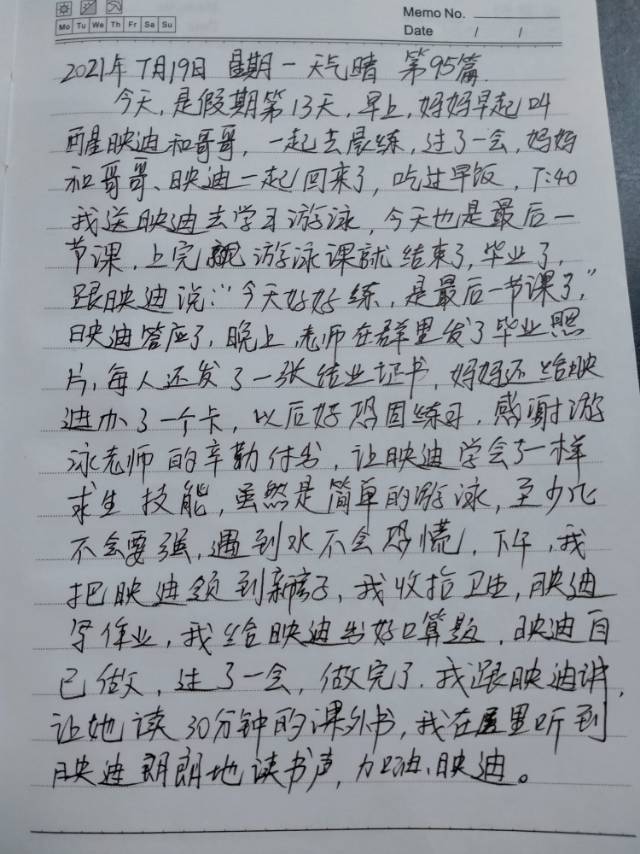 Mo Tu We Th Fr Sa Su
Memo No.
Date / /
2021年7月19日 星期一 天气晴 第95篇
今天,是假期第13天,早上,妈妈早起叫
醒映迪和哥哥,一起去晨练,过了一会,妈妈
和哥哥、映迪一起回来了,吃过早饭,7:40
我送映迪去学习游泳,今天也是最后一
节课,上完 游泳课就结束了,毕业了,
跟映迪说:“今天好好练,是最后一节课了,”
映迪答应了,晚上,老师在群里发了毕业照
片,每人还发了一张结业证书,妈妈还给映
迪办了一个卡,以后好巩固练习,感谢游
泳老师的辛勤付出,让映迪学会了一样
求生技能,虽然是简单的游泳,至少比
不会要强,遇到水不会恐慌,下午,我
把映迪领到新房子,我收拾卫生,映迪
写作业,我给映迪出好口算题,映迪自
己做,过了一会,做完了.我跟映迪讲,
让她读30分钟的课外书,我在屋里听到
映迪朗朗地读书声,加油、映迪。